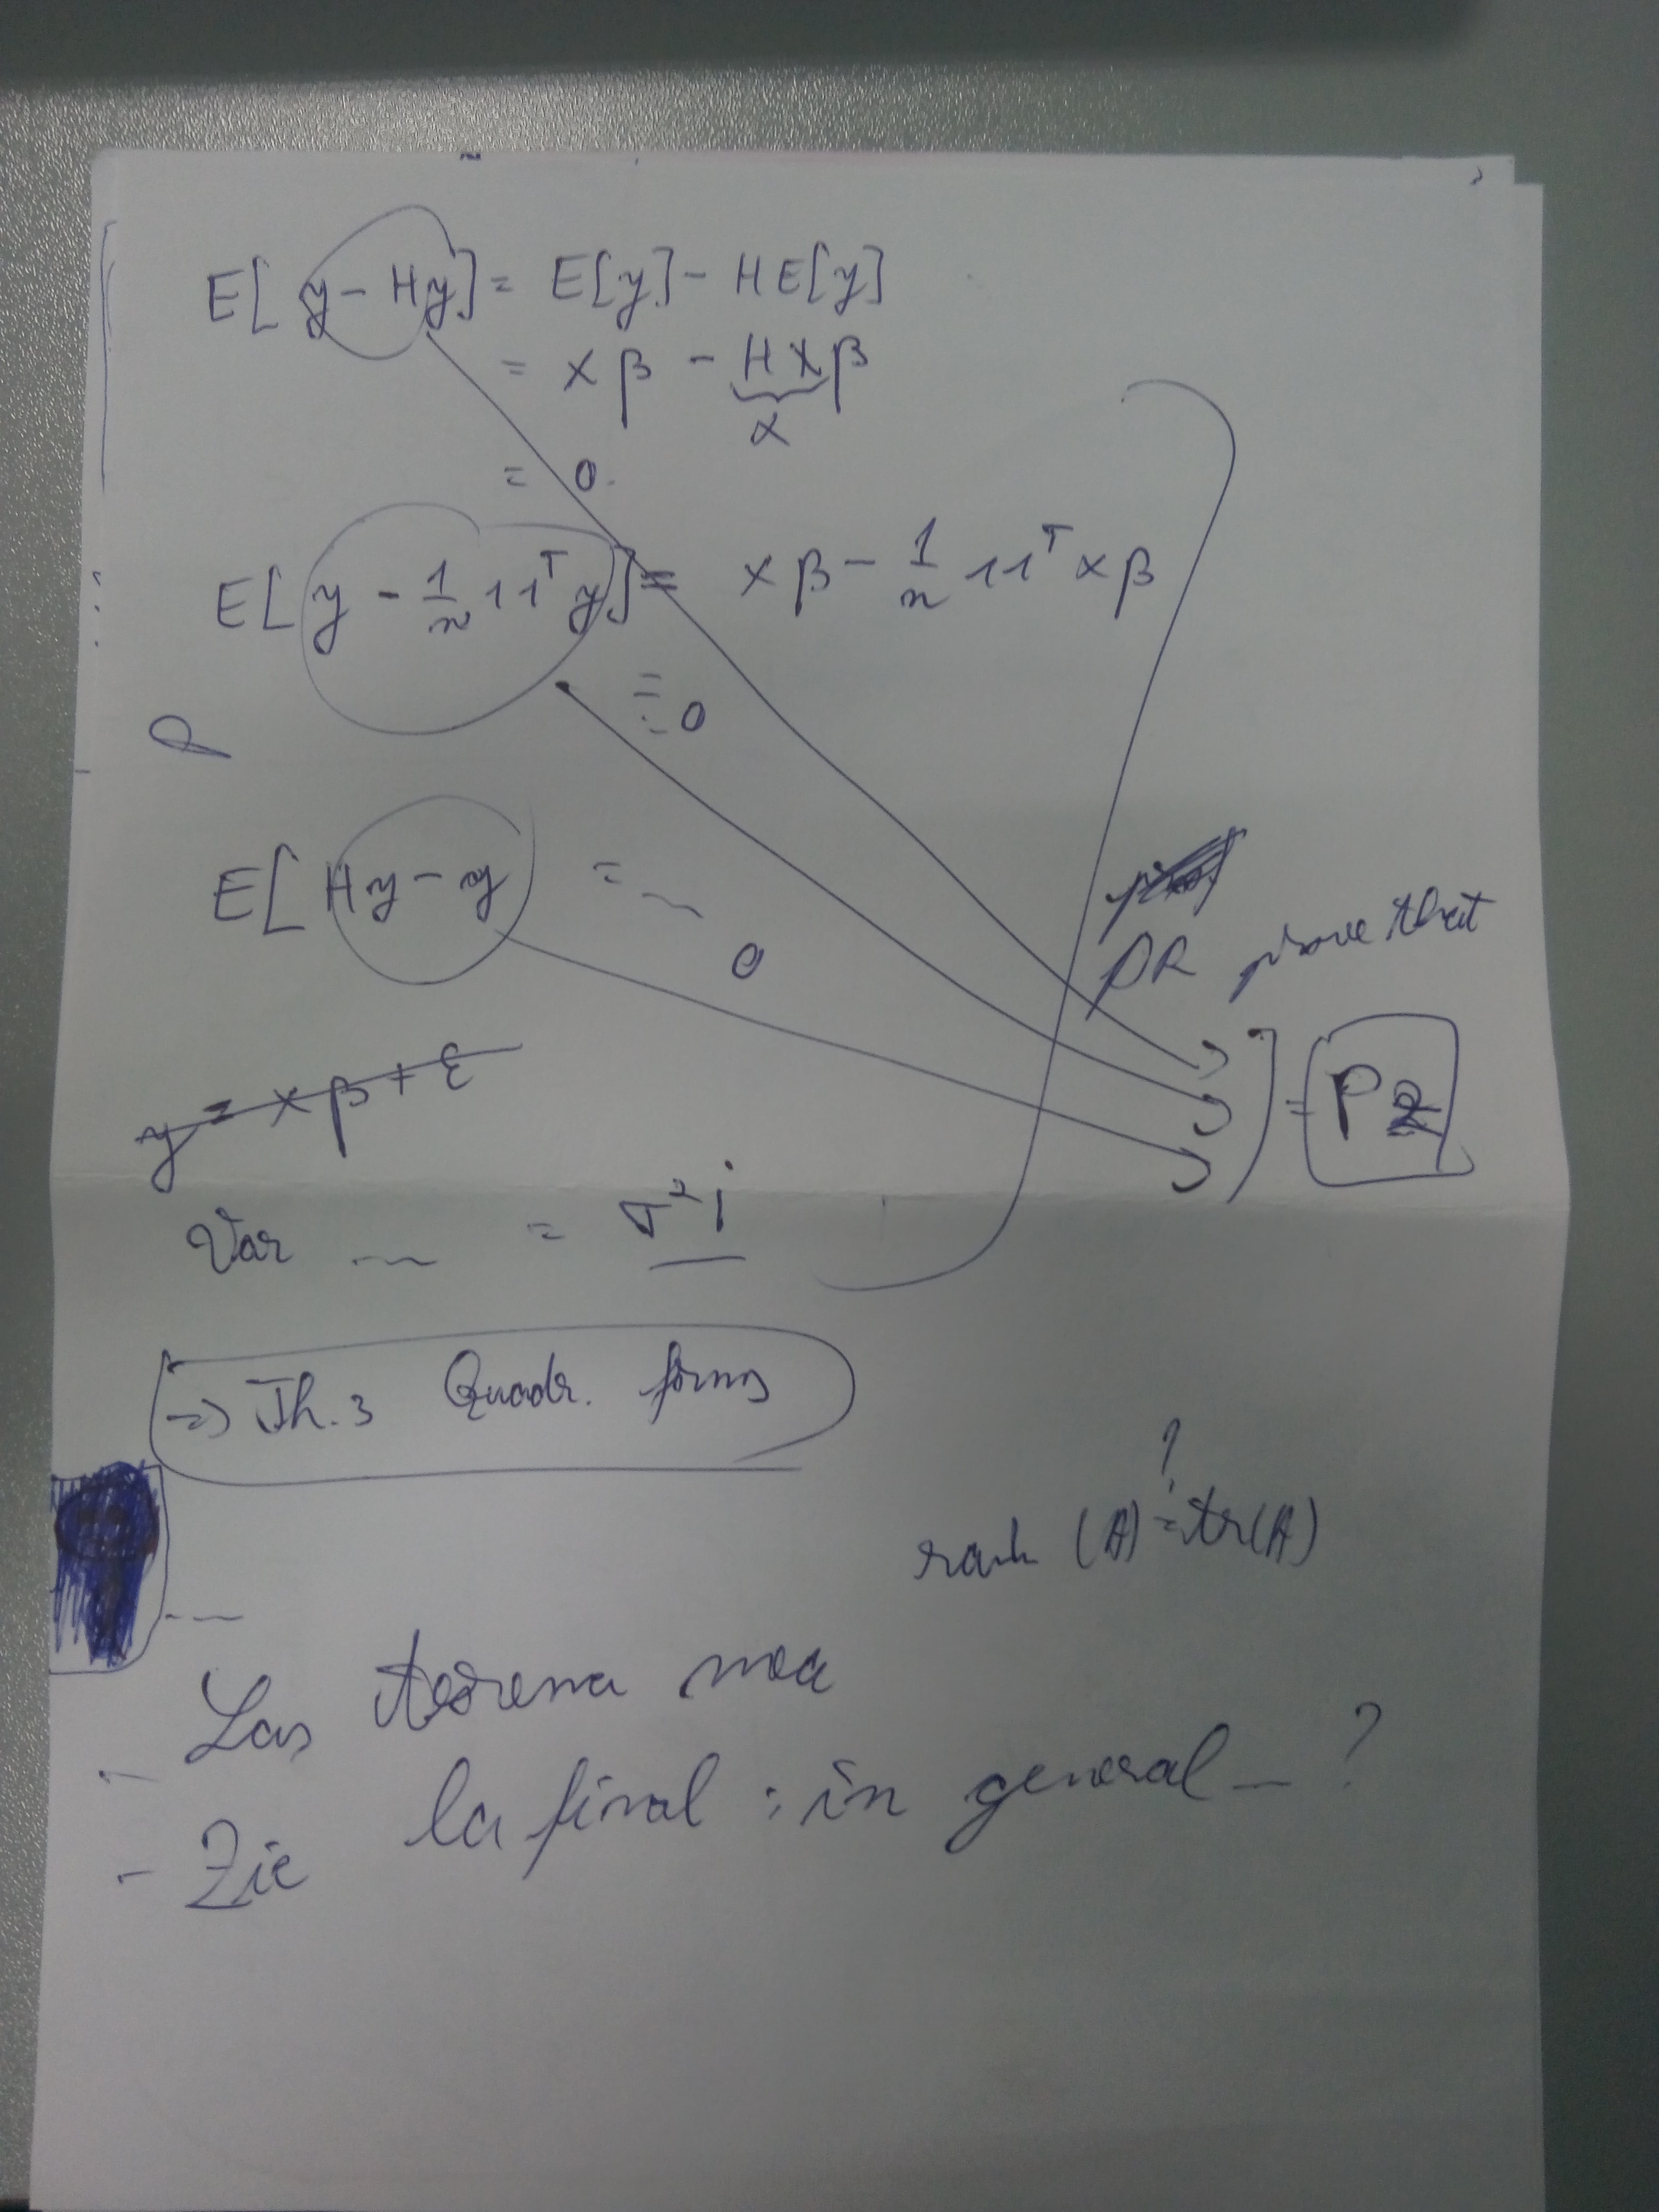 E[y - Hy] = E[y] - HE[y]
= Xβ - HXβ
X
= 0.
E[y - 1/n 11ᵀy] = Xβ - 1/n 11ᵀXβ
= 0
E[Hy - y = 
0
PR prove that
= P2
y = Xβ + ε
Var = σ² i
=> Th. 3 Quadr. forms
?
rank (A) = tr(A)
- Las teorema mea
- Zic la final : în general - ?